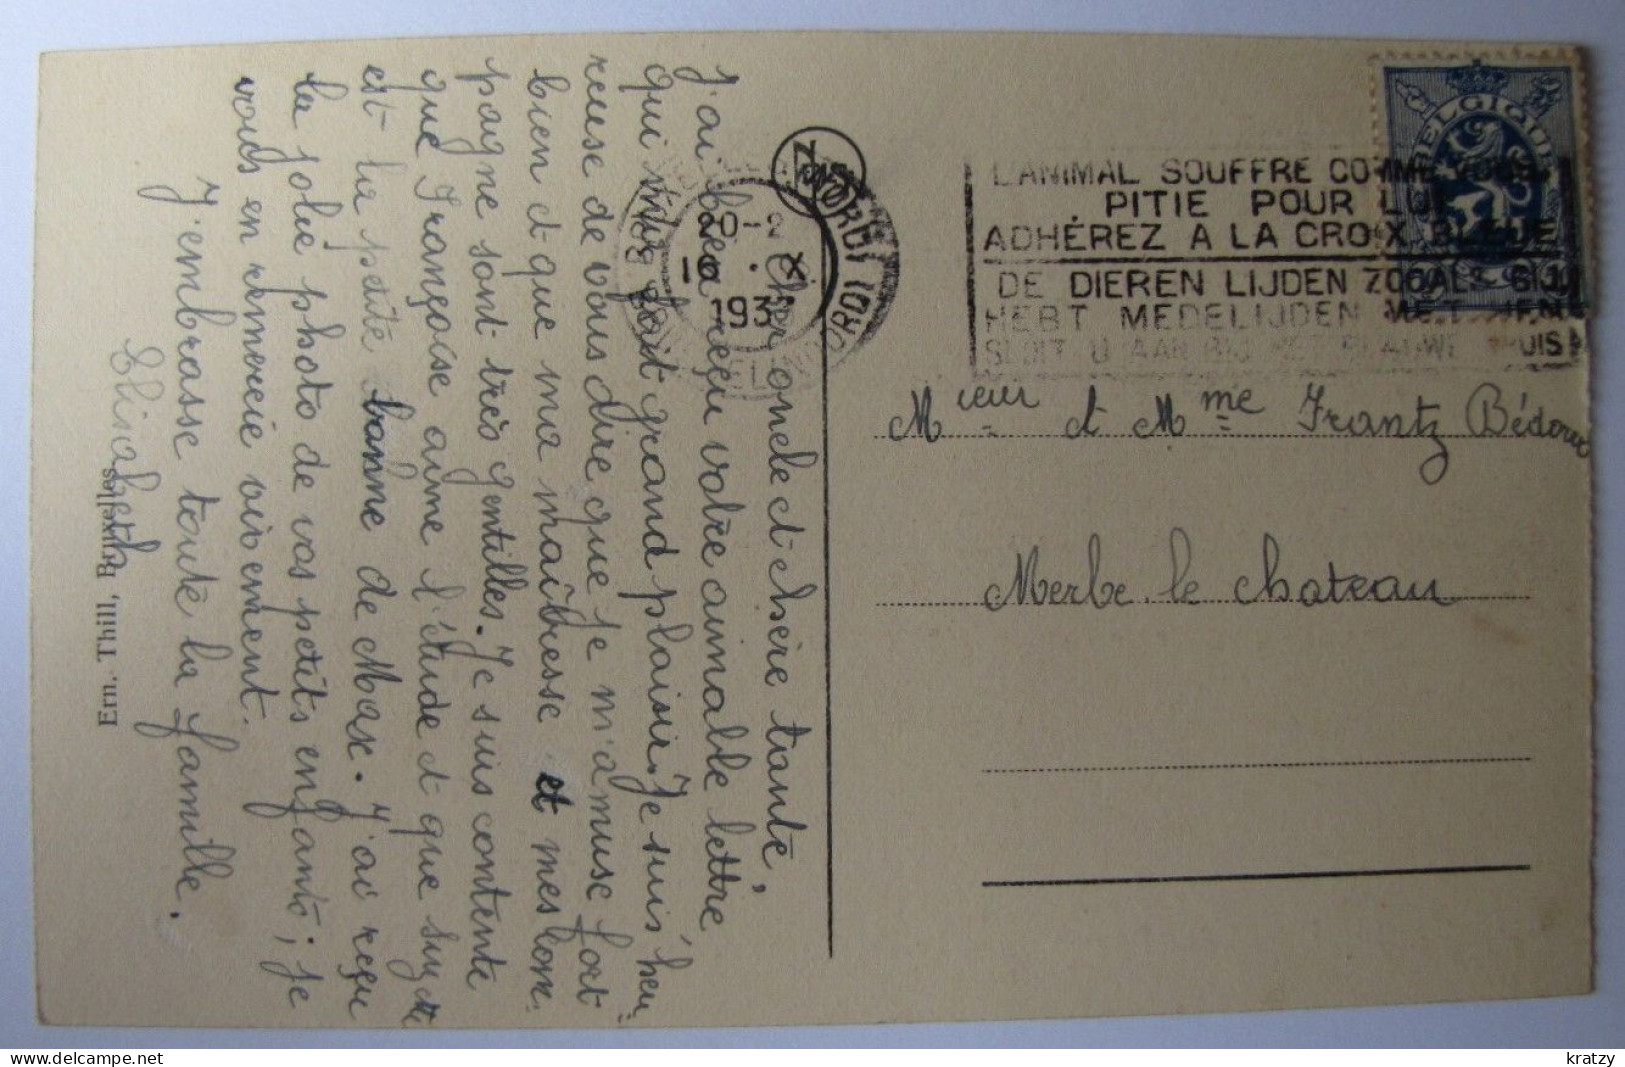 Cher oncle et chère tante,
J'ai bien reçu votre aimable lettre
qui m'a fait grand plaisir. Je suis heu-
reuse de vous dire que je m'amuse fort
bien et que ma maîtresse et mes com-
pagne sont très gentilles. Je suis contente
que Françoise aime l'étude et que Suzette
est la petite de Max. J'ai reçu
la jolie photo de vos petits enfants; je
vous en remercie vivement.
J'embrasse toute la famille.
Elisabeth
Ern. Thill, Bruxelles
BELGIQUE
L'ANIMAL SOUFFRE COMME VOUS
PITIE POUR LUI
ADHÉREZ A LA CROIX BLEUE
DE DIEREN LIJDEN ZOOALS GIJ
HEBT MEDELIJDEN MET HEN
SLUIT U AAN BIJ HET BLAUWE KRUIS
(NORD)
193
Mieur et Mme Frantz Bédoret
Merbe-le chateau
kratzy
delcampe.net